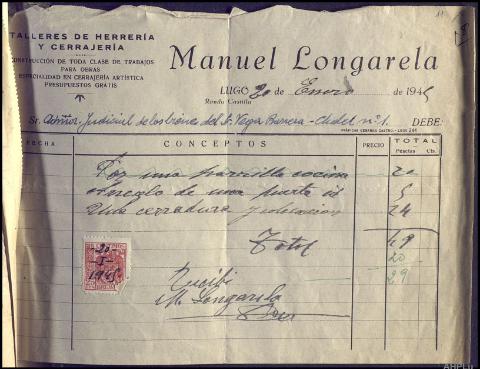 TALLERES DE HERRERÍA
Y CERRAJERÍA
CONSTRUCCIÓN DE TODA CLASE DE TRABAJOS
PARA OBRAS
ESPECIALIDAD EN CERRAJERÍA ARTÍSTICA
PRESUPUESTOS GRATIS
Manuel Longarela
LUGO 20 de Enero de 1945
Ronda Castilla
Sr. Admor. Judicial de los bienes del Sr. Vega Barrera - nº 1. DEBE:
FECHA CONCEPTOS PRECIO TOTAL
Pesetas Cts.
Por una parrilla cocina 20
Arreglo de una puerta id 5
Una cerradura y colocación 24
Total 49
20
29
20-
I-
1945
Recibi
M. Longarela
AHPLU